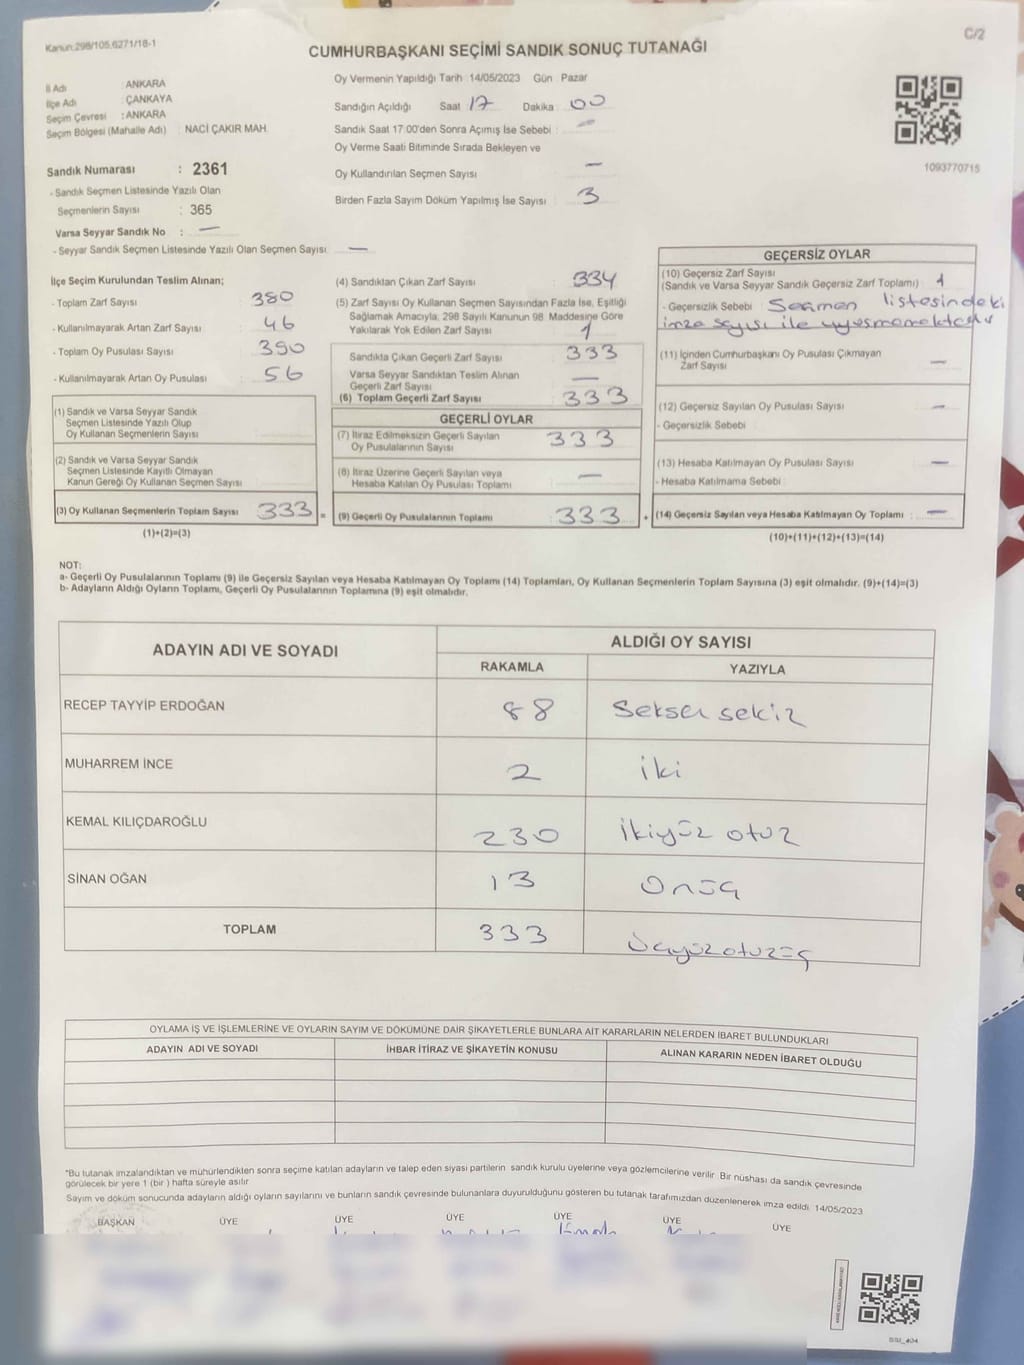 Kanun:298/105.6271/18-1
C/2
CUMHURBAŞKANI SEÇİMİ SANDIK SONUÇ TUTANAĞI
İl Adı : ANKARA
İlçe Adı : ÇANKAYA
Seçim Çevresi : ANKARA
Seçim Bölgesi (Mahalle Adı) : NACİ ÇAKIR MAH.
Sandık Numarası : 2361
- Sandık Seçmen Listesinde Yazılı Olan
Seçmenlerin Sayısı : 365
Varsa Seyyar Sandık No : —
- Seyyar Sandık Seçmen Listesinde Yazılı Olan Seçmen Sayısı —
Oy Vermenin Yapıldığı Tarih :14/05/2023 Gün : Pazar
Sandığın Açıldığı Saat : 17 Dakika : 00
Sandık Saat 17:00'den Sonra Açımış İse Sebebi : —
Oy Verme Saati Bitiminde Sırada Bekleyen ve
Oy Kullandırılan Seçmen Sayısı : —
Birden Fazla Sayım Döküm Yapılmış İse Sayısı : 3
1093770715
İlçe Seçim Kurulundan Teslim Alınan;
- Toplam Zarf Sayısı : 380
- Kullanılmayarak Artan Zarf Sayısı : 46
- Toplam Oy Pusulası Sayısı : 390
- Kullanılmayarak Artan Oy Pusulası : 56
(1) Sandık ve Varsa Seyyar Sandık
Seçmen Listesinde Yazılı Olup
Oy Kullanan Seçmenlerin Sayısı :
(2) Sandık ve Varsa Seyyar Sandık
Seçmen Listesinde Kayıtlı Olmayan
Kanun Gereği Oy Kullanan Seçmen Sayısı :
(3) Oy Kullanan Seçmenlerin Toplam Sayısı : 333 =
(1)+(2)=(3)
(4) Sandıktan Çıkan Zarf Sayısı : 334
(5) Zarf Sayısı Oy Kullanan Seçmen Sayısından Fazla İse, Eşitliği
Sağlamak Amacıyla, 298 Sayılı Kanunun 98. Maddesine Göre
Yakılarak Yok Edilen Zarf Sayısı : 1
Sandıkta Çıkan Geçerli Zarf Sayısı : 333
Varsa Seyyar Sandıktan Teslim Alınan
Geçerli Zarf Sayısı : —
(6) Toplam Geçerli Zarf Sayısı : 333
GEÇERLİ OYLAR
(7) İtiraz Edilmeksizin Geçerli Sayılan
Oy Pusulalarının Sayısı : 333
(8) İtiraz Üzerine Geçerli Sayılan veya
Hesaba Katılan Oy Pusulası Toplamı : —
(9) Geçerli Oy Pusulalarının Toplamı : 333 +
GEÇERSİZ OYLAR
(10) Geçersiz Zarf Sayısı
(Sandık ve Varsa Seyyar Sandık Geçersiz Zarf Toplamı) : 1
- Geçersizlik Sebebi : Seçmen listesindeki
imza sayısı ile uyuşmamaktadır
(11) İçinden Cumhurbaşkanı Oy Pusulası Çıkmayan
Zarf Sayısı : —
(12) Geçersiz Sayılan Oy Pusulası Sayısı : —
- Geçersizlik Sebebi :
(13) Hesaba Katılmayan Oy Pusulası Sayısı : —
- Hesaba Katılmama Sebebi :
(14) Geçersiz Sayılan veya Hesaba Katılmayan Oy Toplamı : —
(10)+(11)+(12)+(13)=(14)
NOT:
a- Geçerli Oy Pusulalarının Toplamı (9) ile Geçersiz Sayılan veya Hesaba Katılmayan Oy Toplamı (14) Toplamları, Oy Kullanan Seçmenlerin Toplam Sayısına (3) eşit olmalıdır. (9)+(14)=(3)
b- Adayların Aldığı Oyların Toplamı, Geçerli Oy Pusulalarının Toplamına (9) eşit olmalıdır.
ADAYIN ADI VE SOYADI ALDIĞI OY SAYISI
RAKAMLA YAZIYLA
RECEP TAYYİP ERDOĞAN 88 Seksen sekiz
MUHARREM İNCE 2 iki
KEMAL KILIÇDAROĞLU 230 ikiyüz otuz
SİNAN OĞAN 13 Onüç
TOPLAM 333 üçyüzotuzüç
OYLAMA İŞ VE İŞLEMLERİNE VE OYLARIN SAYIM VE DÖKÜMÜNE DAİR ŞİKAYETLERLE BUNLARA AİT KARARLARIN NELERDEN İBARET BULUNDUKLARI
ADAYIN ADI VE SOYADI İHBAR İTİRAZ VE ŞİKAYETİN KONUSU ALINAN KARARIN NEDEN İBARET OLDUĞU
*Bu tutanak imzalandıktan ve mühürlendikten sonra seçime katılan adayların ve talep eden siyasi partilerin sandık kurulu üyelerine veya gözlemcilerine verilir. Bir nüshası da sandık çevresinde
görülecek bir yere 1 (bir) hafta süreyle asılır.
Sayım ve döküm sonucunda adayların aldığı oyların sayılarını ve bunların sandık çevresinde bulunanlara duyurulduğunu gösteren bu tutanak tarafımızdan düzenlenerek imza edildi. 14/05/2023
BAŞKAN ÜYE ÜYE ÜYE ÜYE ÜYE ÜYE